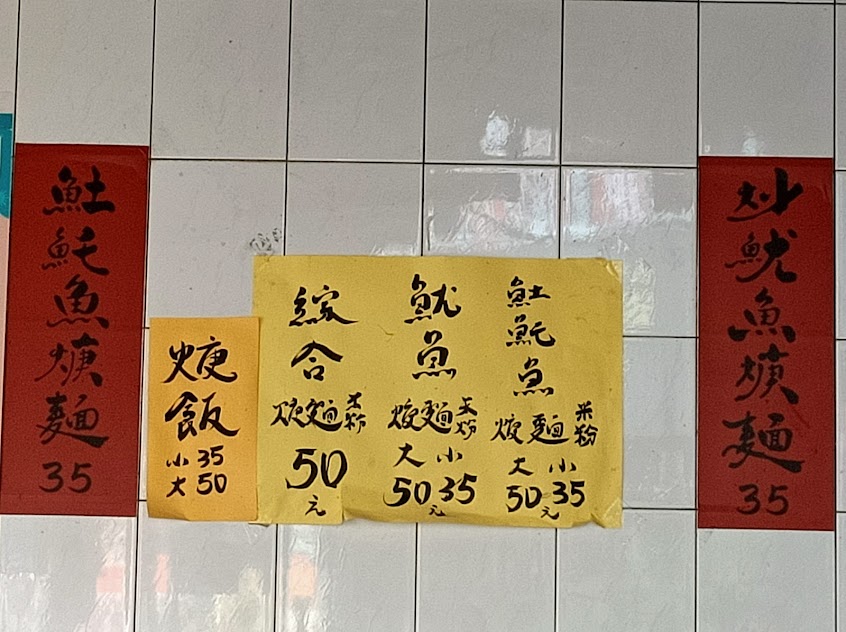 𩵚魠魚焿麵
35
焿飯
小 35
大 50
綜合
焿麵 米粉
50
元
魷魚
焿麵 米粉
大 小
50 35
元
𩵚魠魚
焿麵 米粉
大 小
50 35
元
炒魷魚焿麵
35